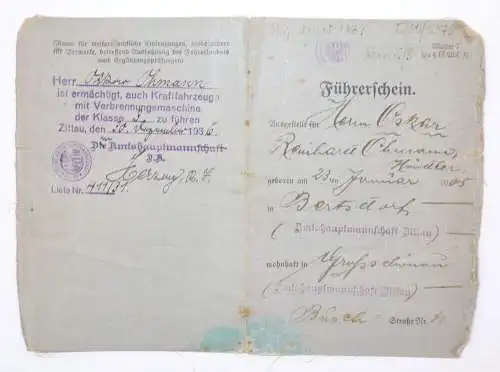 (Raum für weitere amtliche Eintragungen, insbesondere
für Vermerke, betreffend Ausdehnung des Führerscheins
und Ergänzungsprüfungen)
Herr Oskar Ohmann
ist ermächtigt, auch Kraftfahrzeuge
mit Verbrennungsmaschine
der Klasse zu führen
Zittau, den 30. Dezember 193
Die Amtshauptmannschaft
J.A.
Herzog,
Liste Nr. 411/31.
Führerschein.
Ausgestellt für Herrn Oskar
Reinhard Ohmann,
Händler,
geboren am 23ten Januar 1905
in Bertsdorf
(Amtshauptmannschaft Zittau)
wohnhaft in Großschönau
(Amtshauptmannschaft Zittau)
Busch- Straße Nr.